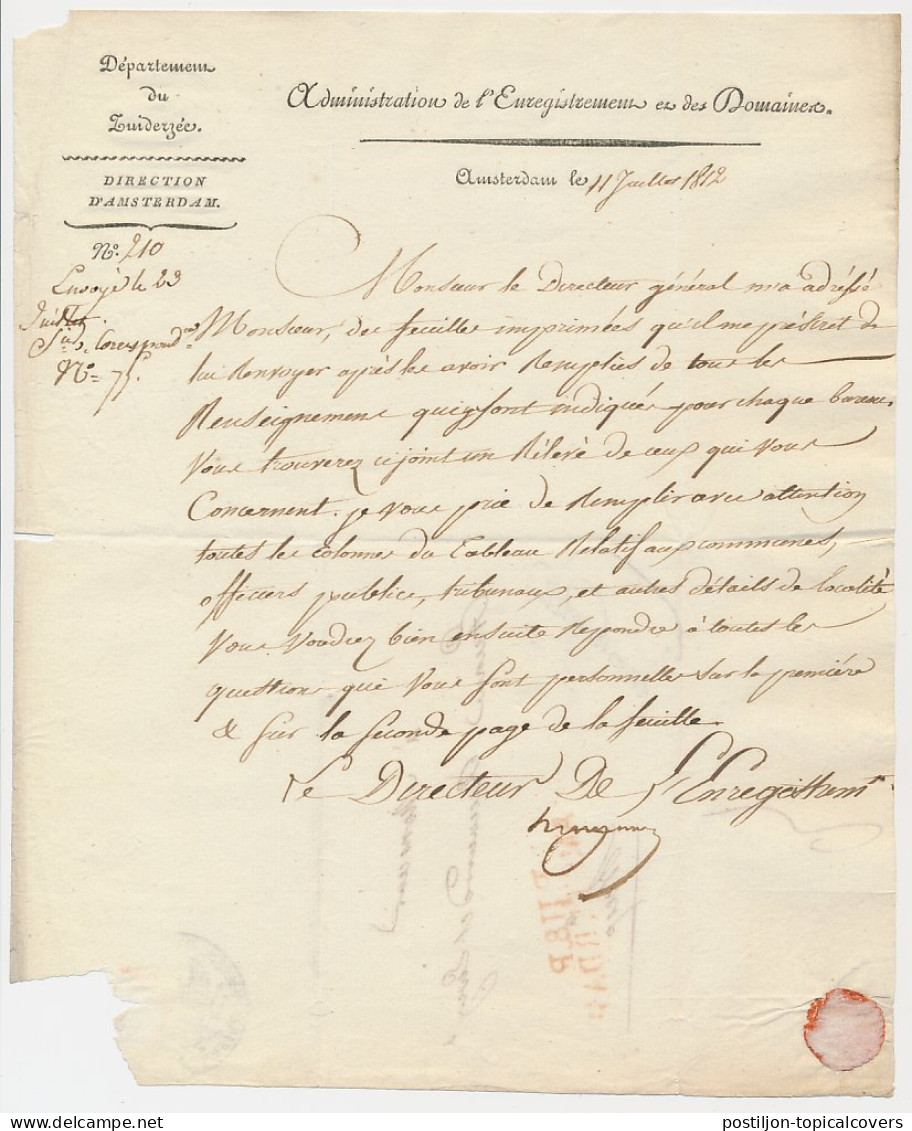 Département
du
Zuiderzée.
DIRECTION
D'AMSTERDAM.
Administration de l'Enregistrement et des Domaines.
Amsterdam le 11 Juillet 1812
N.º 210
Envoyé le 23
Juillet.
Correspond.ce
Nº 75.
Monsieur le Directeur général m'a adréssé
Monsieur, des feuilles imprimées qu'il me préscrit de
lui Renvoyer après les avoir Remplies de tous les
Renseignemens qui y sont indiqués pour chaque bureau.
Vous trouverez cijoint un Rélévé de ceux qui Vous
Concernent. je vous prie de Remplir avec attention
toutes les colonnes du Tableau Rélatif aux communes,
officiers publics, tribunaux, et autres détails de localité
Vous Voudrez bien ensuite Repondre à toutes les
questions qui Vous sont personnelles sur la première
& sur la seconde page de la feuille.
Le Directeur De l'Enregistrem.t
postiljon-topicalcovers / postiljon-topicalcovers